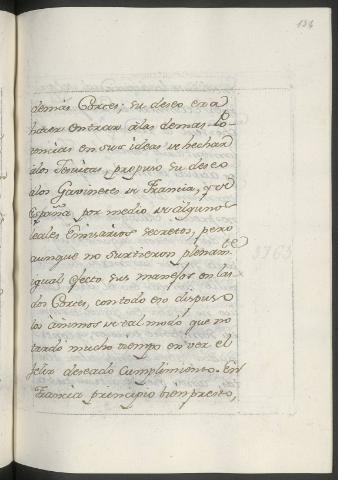 134
demás Cortes; su deseo era
hacer entrar à las demas Po-
tencias en sus ideas de hechar
a los Jesuitas, propuso su deseo
a los Gavinetes de Francia, y de
España por medio de algunos
leales Emisarios secretos, pero
aunque no surtieron plenamte
igual efecto sus manejos en las
dos Cortes, con todo eso dispuso
los ánimos de tal modo que no
tardó mucho tiempo en ver el
feliz deseado cumplimiento. En
Francia principio bien presto,